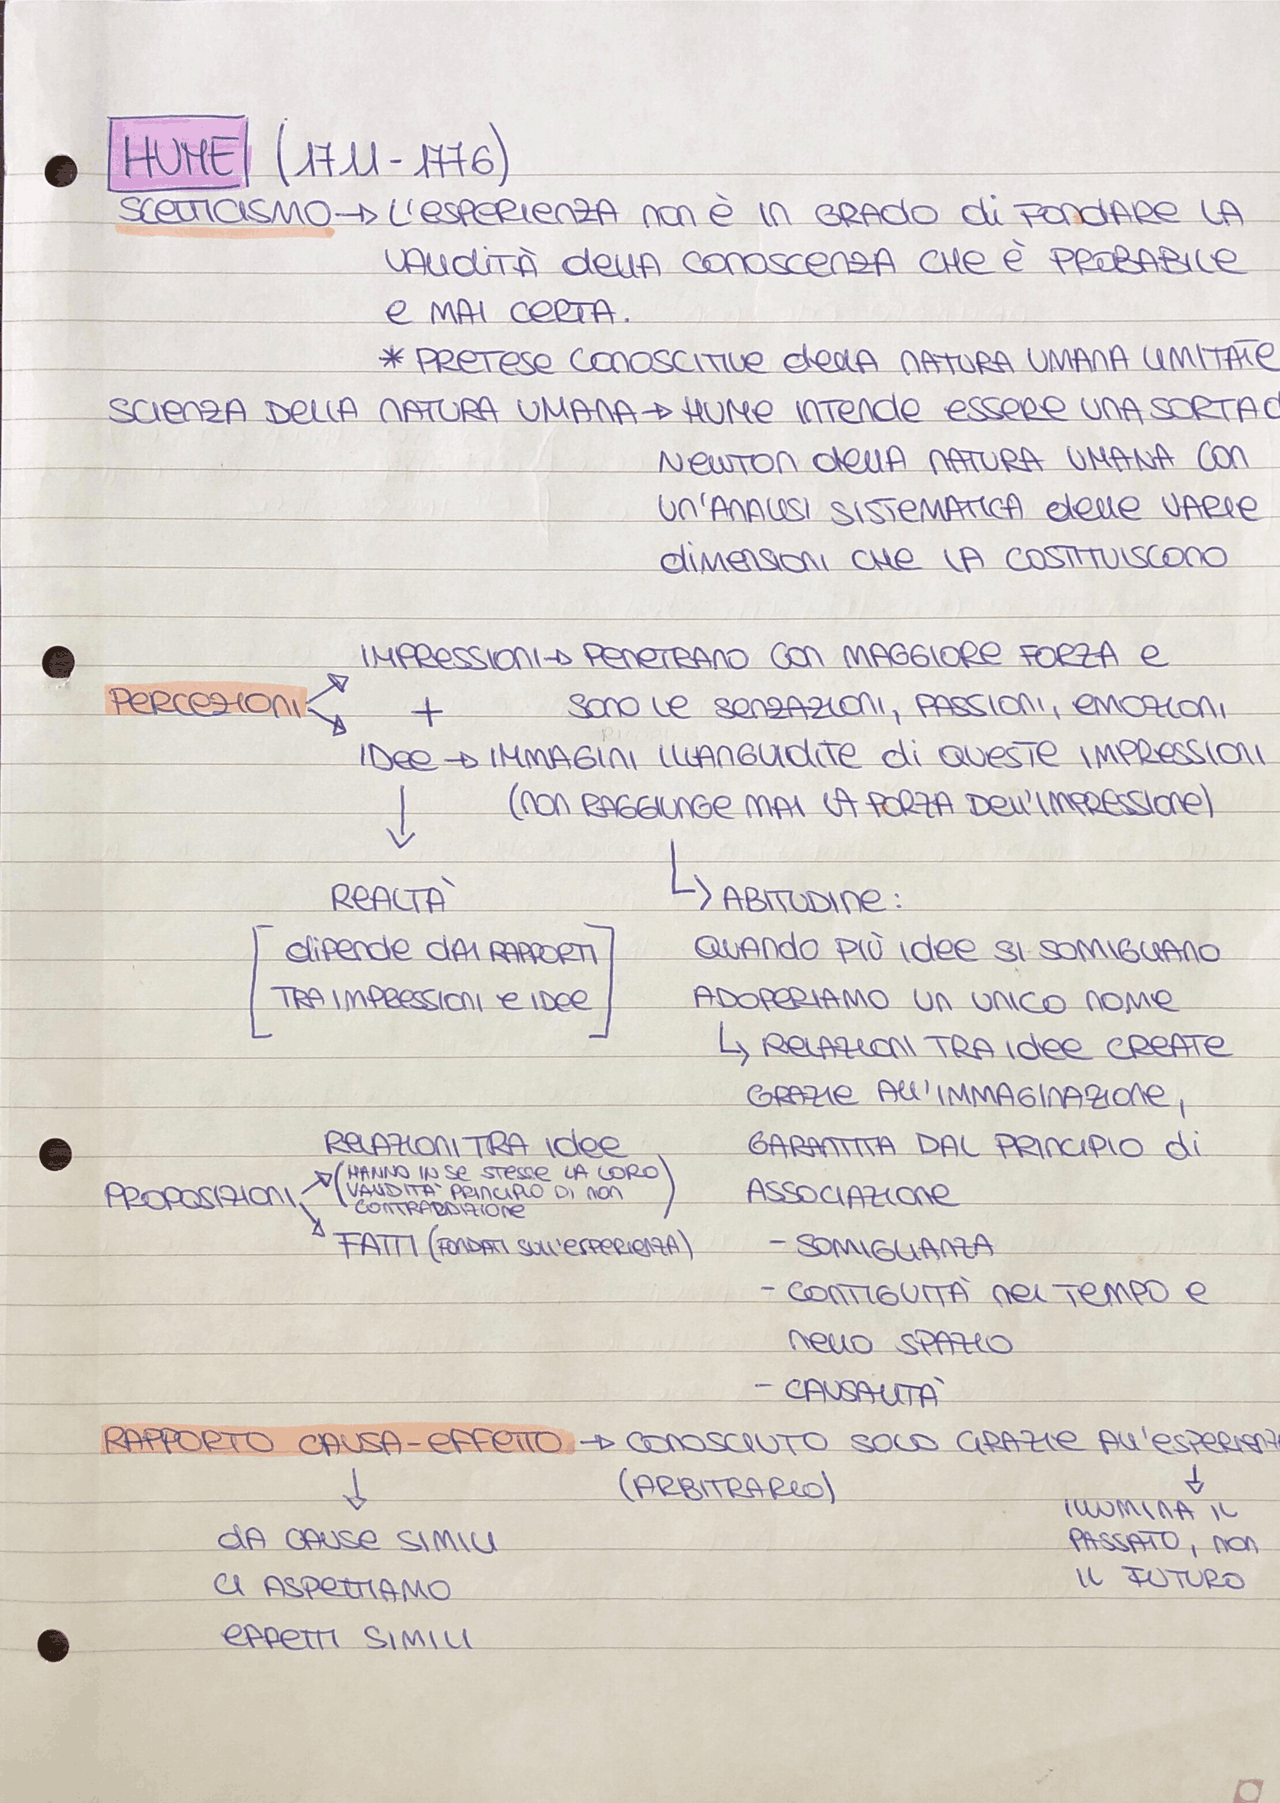 HUME (1711-1776)
SCETTICISMO → L'ESPERIENZA NON È IN GRADO di FONDARE LA
VALIDITÀ DELLA CONOSCENZA CHE È PROBABILE
E MAI CERTA.
* PRETESE CONOSCITIVE DELLA NATURA UMANA LIMITATE
SCIENZA DELLA NATURA UMANA → HUME INTENDE ESSERE UNA SORTA d
NEWTON DELLA NATURA UMANA CON
UN'ANALISI SISTEMATICA DELLE VARIE
DIMENSIONI CHE LA COSTITUISCONO
IMPRESSIONI → PENETRANO CON MAGGIORE FORZA E
PERCEZIONI + SONO LE SENZAZIONI, PASSIONI, EMOZIONI
IDEE → IMMAGINI ILLANGUIDITE di QUESTE IMPRESSIONI
(NON RAGGIUNGE MAI LA FORZA DELL'IMPRESSIONE)
↓
REALTÀ
[dipende DAI RAPPORTI
TRA IMPRESSIONI e IDEE]
↳ ABITUDINE:
QUANDO PIÙ IDEE SI SOMIGLIANO
ADOPERIAMO UN UNICO NOME
↳ RELAZIONI TRA IDEE CREATE
GRAZIE ALL'IMMAGINAZIONE,
GARANTITA DAL PRINCIPIO di
ASSOCIAZIONE
- SOMIGLIANZA
- CONTIGUITÀ NEL TEMPO E
NELLO SPAZIO
- CAUSALITÀ
RELAZIONI TRA IDEE
(HANNO IN SE STESSE LA LORO
VALIDITÀ PRINCIPIO DI NON
CONTRADDIZIONE)
PROPOSIZIONI
FATTI (FONDATI SULL'ESPERIENZA)
RAPPORTO CAUSA-EFFETTO → CONOSCIUTO SOLO GRAZIE ALL'ESPERIENZ
(ARBITRARIO)
↓
DA CAUSE SIMILI
CI ASPETTIAMO
EFFETTI SIMILI
↓
ILLUMINA IL
PASSATO, NON
IL FUTURO